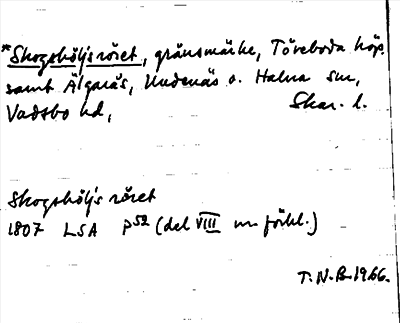 *Skogshöljs röset, gränsmärke, Töreboda köp.
samt Älgarås, Undenäs o. Halna snr,
Vadsbo hd, Skar. l.
Skogshöljs röset
1807 LSA P 52 (del VIII m förkl.)
T.N.B. 1966.